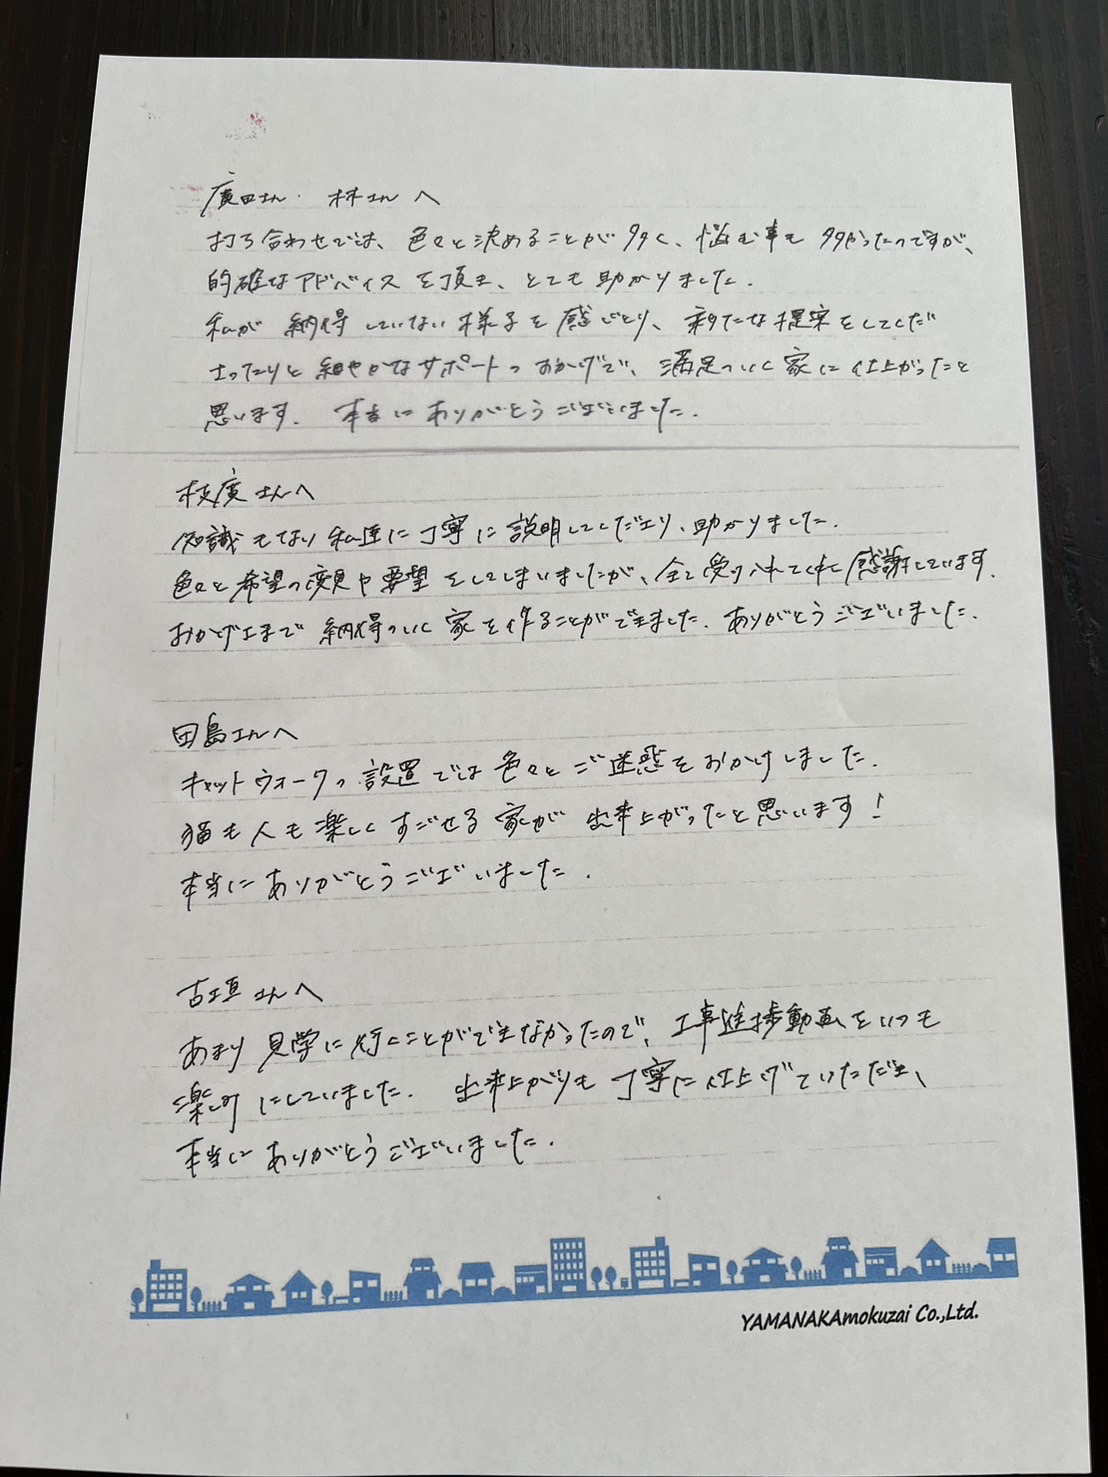 廣田さん・林さんへ
打ち合わせでは、色々と決めることが多く、悩む事も多かったのですが、
的確なアドバイスを頂き、とても助かりました。
私が納得していない様子を感じとり、新たな提案をしてくだ
さったりと細やかなサポートのおかげで、満足のいく家に仕上がったと
思います。本当にありがとうございました。
枝廣さんへ
知識もない私達に丁寧に説明してくださり、助かりました。
色々と希望の変更や要望をしてしまいましたが、全て受け入れてくれて感謝しています。
おかげさまで納得のいく家を作ることができました。ありがとうございました。
田島さんへ
キャットウォークの設置では色々とご迷惑をおかけしました。
猫も人も楽しくすごせる家が出来上がったと思います!
本当にありがとうございました。
古垣さんへ
あまり見学に行くことができなかったので、工事進捗動画をいつも
楽しみにしていました。出来上がりも丁寧に仕上げていただき、
本当にありがとうございました。
YAMANAKAmokuzai Co.,Ltd.